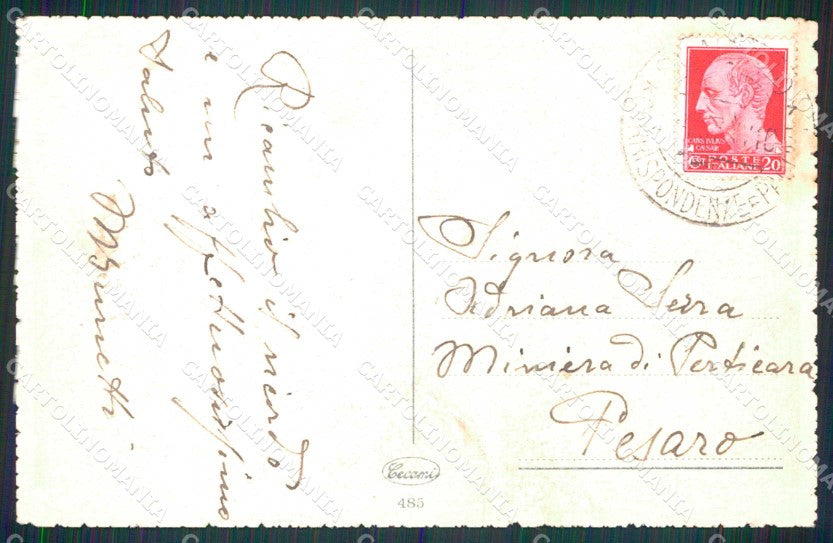 Ricambio il ricordo
e un affettuosissimo
saluto
MBrunetti
Signora
Adriana Serra
Miniera di Perticara
Pesaro
Cecami
485
CAIVS IVLIVS
CAESAR
POSTE
ITALIANE 20
CORRISPONDENZE E PA
CARTOLINOMANIA